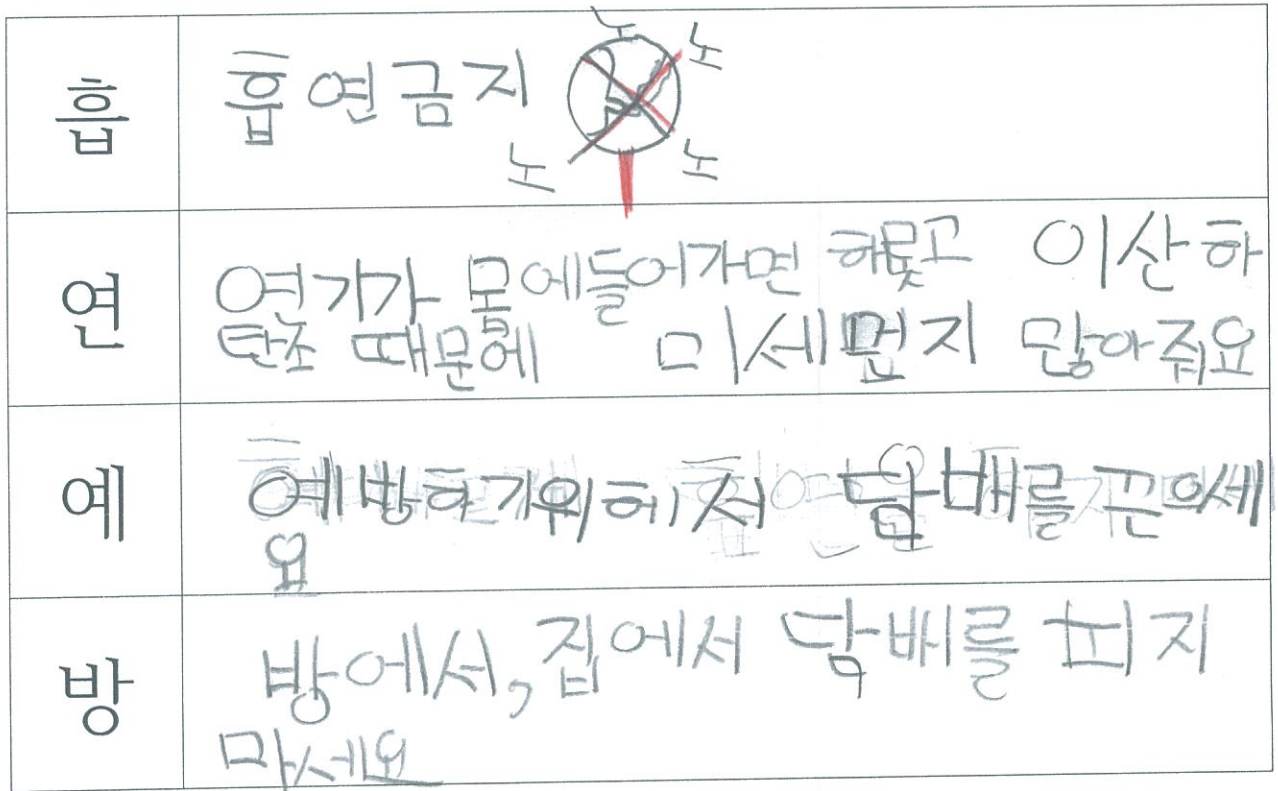 흡
흡연금지
노
노
노
노
연
연기가 몸에들어가면 이산하
탄소 때문에 미세먼지 많아줘요
예
예방하기위해서 담배를 끈으세
요
방
방에서,집에서 담배를 피지
마세요